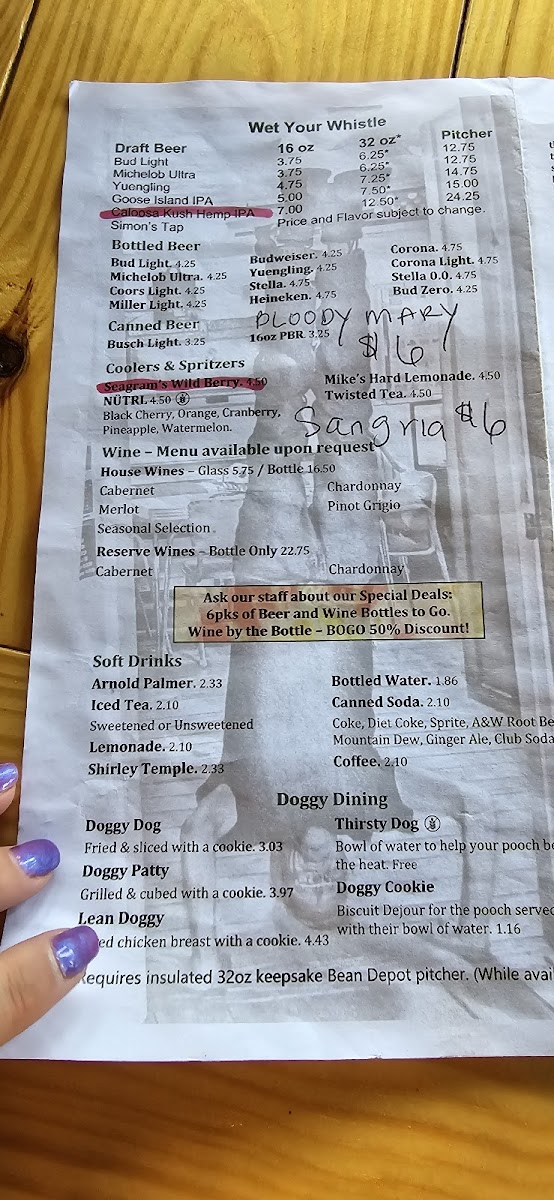 Wet Your Whistle
Draft Beer 16 oz 32 oz* Pitcher
Bud Light 3.75 6.25* 12.75
Michelob Ultra 3.75 6.25* 12.75
Yuengling 4.75 7.25* 14.75
Goose Island IPA 5.00 7.50* 15.00
Caloosa Kush Hemp IPA 7.00 12.50* 24.25
Simon's Tap Price and Flavor subject to change.
Bottled Beer
Bud Light. 4.25 Budweiser. 4.25 Corona. 4.75
Michelob Ultra. 4.25 Yuengling. 4.25 Corona Light. 4.75
Coors Light. 4.25 Stella. 4.75 Stella 0.0. 4.75
Miller Light. 4.25 Heineken. 4.75 Bud Zero. 4.25
Canned Beer BLOODY MARY
Busch Light. 3.25 16oz PBR. 3.25 $6
Coolers & Spritzers
Seagram's Wild Berry. 4.50 Mike's Hard Lemonade. 4.50
NÜTRL 4.50 Twisted Tea. 4.50
Black Cherry, Orange, Cranberry,
Pineapple, Watermelon. Sangria $6
Wine – Menu available upon request
House Wines – Glass 5.75 / Bottle 16.50
Cabernet Chardonnay
Merlot Pinot Grigio
Seasonal Selection
Reserve Wines – Bottle Only 22.75
Cabernet Chardonnay
Ask our staff about our Special Deals:
6pks of Beer and Wine Bottles to Go.
Wine by the Bottle – BOGO 50% Discount!
Soft Drinks
Arnold Palmer. 2.33 Bottled Water. 1.86
Iced Tea. 2.10 Canned Soda. 2.10
Sweetened or Unsweetened Coke, Diet Coke, Sprite, A&W Root Be
Lemonade. 2.10 Mountain Dew, Ginger Ale, Club Soda
Shirley Temple. 2.33 Coffee. 2.10
Doggy Dining
Doggy Dog Thirsty Dog
Fried & sliced with a cookie. 3.03 Bowl of water to help your pooch be
Doggy Patty the heat. Free
Grilled & cubed with a cookie. 3.97 Doggy Cookie
Lean Doggy Biscuit Dejour for the pooch served
ed chicken breast with a cookie. 4.43 with their bowl of water. 1.16
Requires insulated 32oz keepsake Bean Depot pitcher. (While avai